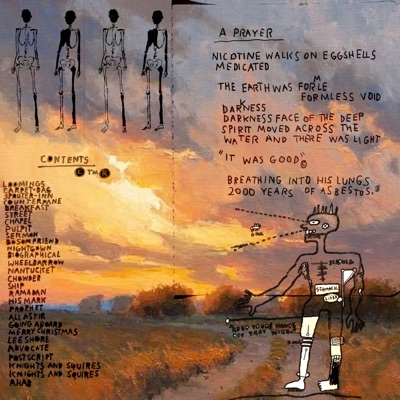 CONTENTS
C TM R
LOOMINGS
CARPET-BAG
SPOUTER-INN
COUNTERPANE
BREAKFAST
STREET
CHAPEL
PULPIT
SERMON
BOSOM FRIEND
NIGHTGOWN
BIOGRAPHICAL
WHEELBARROW
NANTUCKET
CHOWDER
SHIP
RAMADAN
HIS MARK
PROPHET
ALL ASTIR
GOING ABOARD
MERRY CHRISTMAS
LEE SHORE
ADVOCATE
POSTSCRIPT
KNIGHTS AND SQUIRES
KNIGHTS AND SQUIRES
AHAB
A PRAYER
NICOTINE WALKS ON EGGSHELLS
MEDICATED
THE EARTH WAS FORMLE
FORMLESS VOID
DARKNESS
DARKNESS FACE OF THE DEEP
SPIRIT MOVED ACROSS THE
WATER AND THERE WAS LIGHT
"IT WAS GOOD"©
BREATHING INTO HIS LUNGS
2000 YEARS OF ASBESTOS.
STOMACH
LIVER